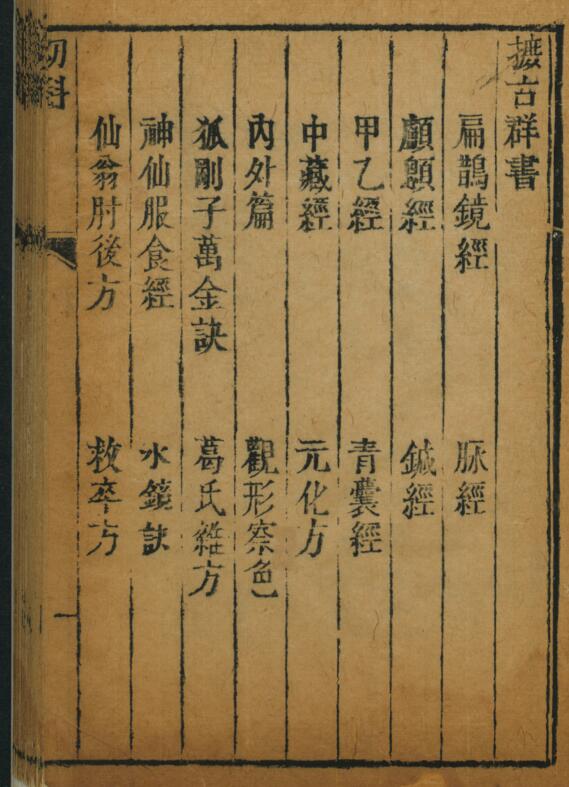 摭古群書
扁鵲鏡經 脉經
顱顖經 鍼經
甲乙經 青囊經
中藏經 元化方
內外篇 觀形察色
狐剛子萬金訣 葛氏雜方
神仙服食經 水鏡訣
仙翁肘後方 救卒方
幼科
一